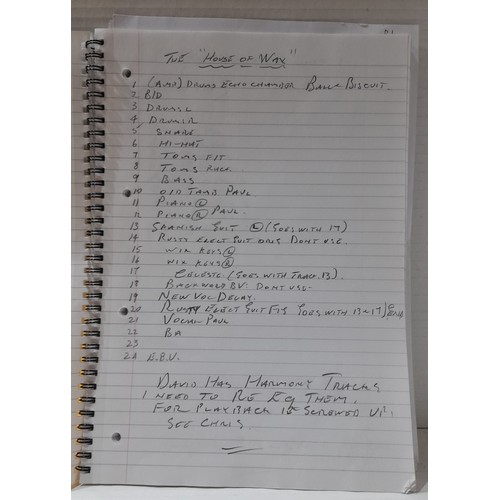 THE "HOUSE OF WAX"
1 (AMB) DRUMS ECHO CHAMBER BALL & BISCUIT.
2 B/D
3 DRUMS L
4 DRUMS R
5 SNARE
6 HI-HAT
7 TOMS FLT
8 TOMS RACK
9 BASS
10 OLD TAMB PAUL
11 PIANO Ⓛ
12 PIANO Ⓡ PAUL.
13 SPANISH GUIT Ⓛ (GOES WITH 17)
14 RUSTY ELECT GUIT DONT USE.
15 WIX KEYS Ⓛ
16 WIX KEYS Ⓡ
17 CELESTE. (GOES WITH TRACK 13)
18 BACKWARD BV. DONT USE-
19 NEW VOC DELAY.
20 RUSTY ELECT GUIT GOES WITH 13 & 17) END
21 VOCAL PAUL
22 BA
23
24 E.B.V.
DAVID HAS HARMONY TRACKS
I NEED TO RE EQ THEM.
FOR PLAYBACK IS SCREWED UP!
SEE CHRIS